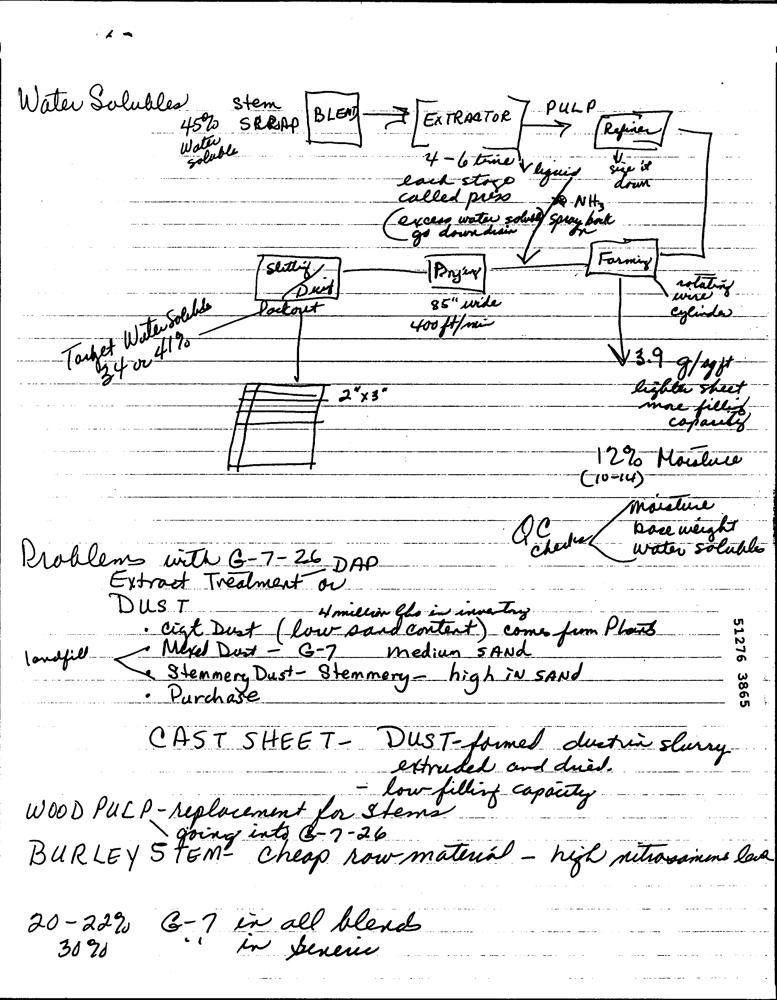 Water Solubles
45% Water soluble
Stem
SRRAP
BLEND
EXTRACTOR
PULP
Refiner
size it down
4-6 time
each stage
called press
(excess water soluble)
go down drain
liquid
NH3
spray back on
Forming
rotating
wire
cylinder
Drying
85" wide
400 ft/min
Slitting
Packout
Target Water Soluble
34 or 41%
2"x3"
3.9 g/sq ft
lighter sheet
more filling
capacity
12% Moisture
(10-14)
QC
checks
moisture
base weight
water solubles
Problems with G-7-26 DAP
Extract Treatment or
DUST
4 million lbs in inventory
• Cigt Dust (low sand content) comes from Plants
landfill
• Mixed Dust - G-7 medium SAND
• Stemmery Dust - Stemmery - high in SAND
• Purchase
CAST SHEET - DUST-formed dust in slurry
extruded and dried.
- low filling capacity
WOOD PULP - replacement for stems
going into G-7-26
BURLEY STEM - cheap raw material - high nitrosamine level
20-22% G-7 in all blends
30% " in generic
51276 3865